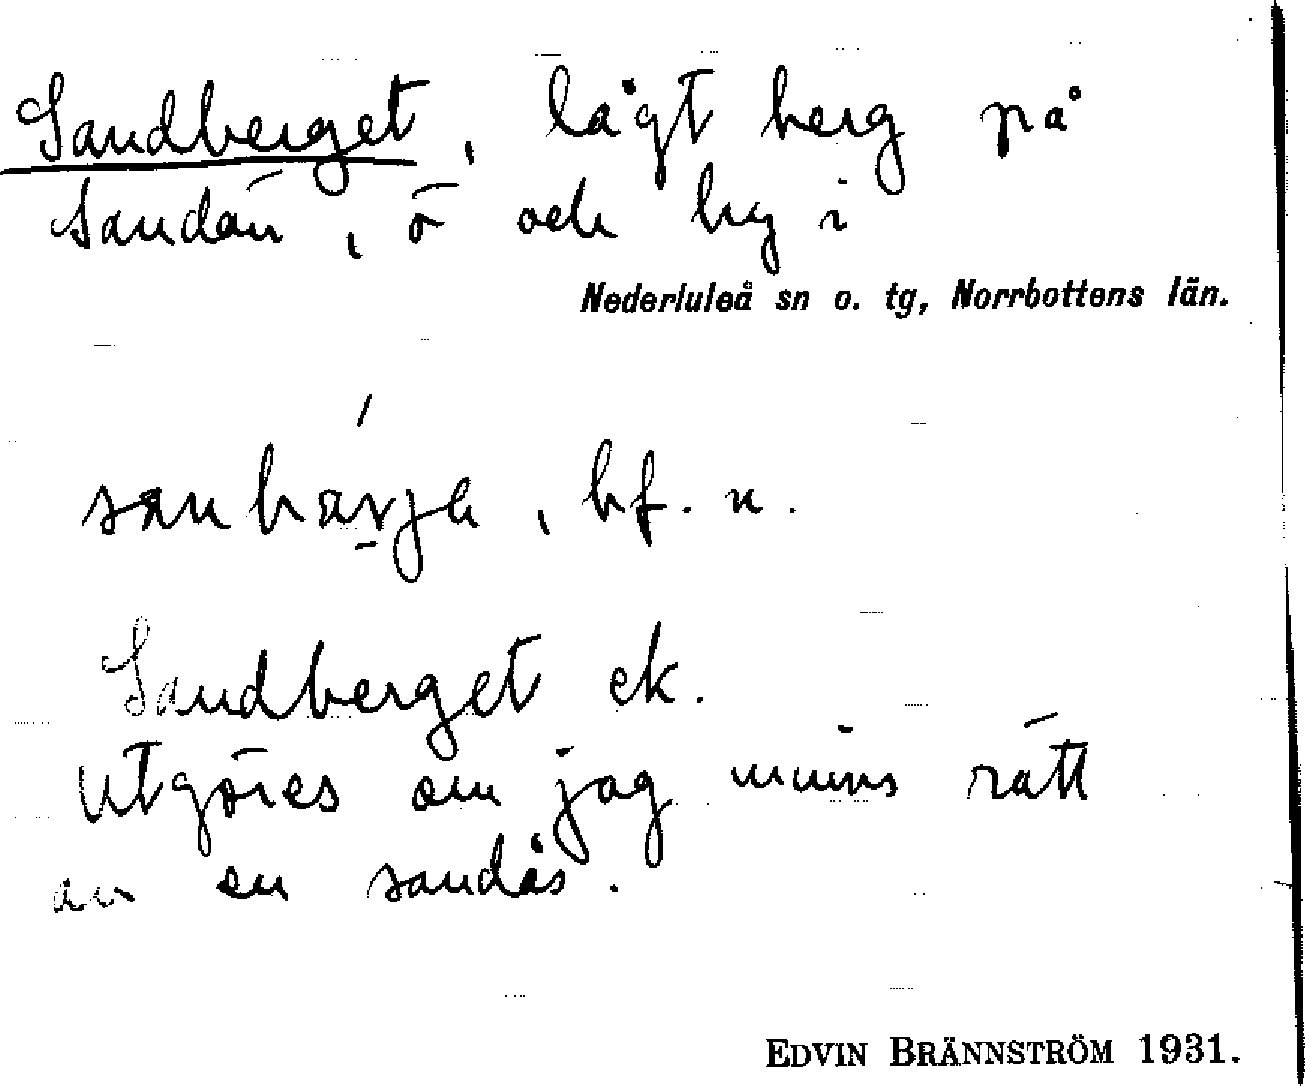 Sandberget, lågt berg på
Sandön, ö och by i
Nederluleå sn o. tg, Norrbottens län.
bf. n.
Sandberget ek.
Utgöres om jag minns rätt
av en sandås.
EDVIN BRÄNNSTRÖM 1931.